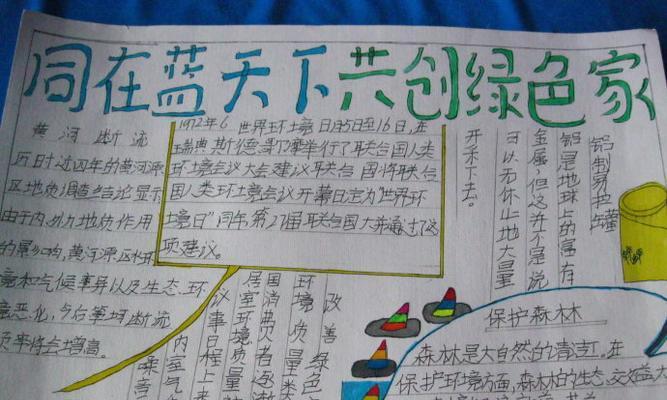 同在蓝天下共创绿色家
黄河断流
历时过四年的黄河源
区地质调查结论显示
由于内外力地质作用
的影响,黄河源区环
境和气候事异以及生态环
境恶化,今后黄河断流
频率将会增高。
1972年6 世界环境日月5日至16日,在
瑞典斯德哥尔摩举行了联合国人类
环境会议大会建议联合国将联合
国人类环境会议开幕日定为“世界环
境日”同年,第27届联合国大并通过了这
项建议。
铝制易拉罐
铝是地球上的富有
金属,但这并不是说
可以无休止地大量
开采下去。
改善
绿色
环境质量
国消费者逐渐
居室环境质量
议事日程上来
内室气
噪音
保护森林
森林是大自然的清洁工,在
保护环境方面,森林的生态交效益大